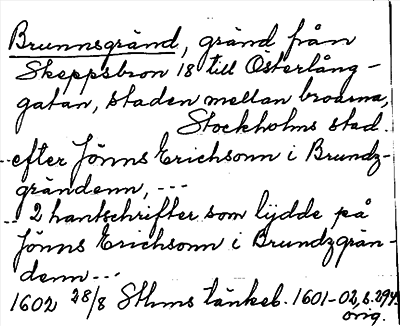 Brunnsgränd, gränd från
Skeppsbron 18 till Österlång-
gatan, staden mellan broarna,
Stockholms stad.
..efter Jönns Erichsonn i Brundz-
grändenn, ---
.. 2 hantschrifter som lydde på
Jönns Erichsonn i Brundzgrän-
denn ---
1602 28/8 Sthms tänkeb. 1601-02, s. 294
orig.